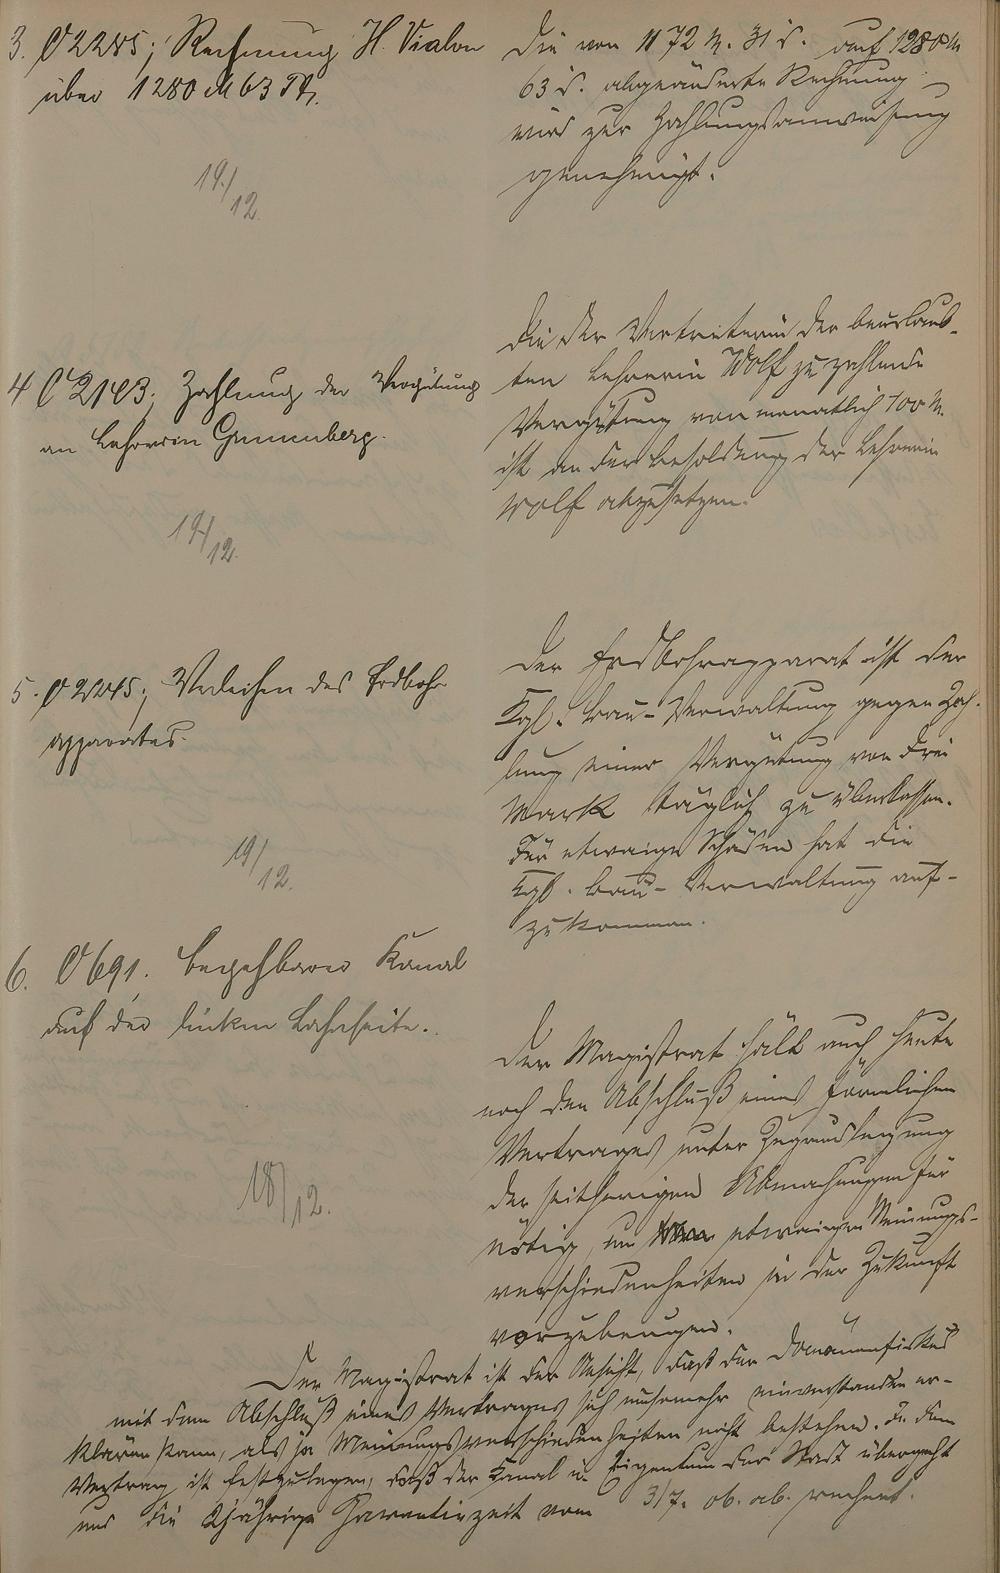 3. O 2285; Rechnung H. Vialon
über 1280 M 63 Pf.
19./12.
Die von 1172 M. 31 d. auf 1280 M
63 d. abgeänderte Rechnung
wird zur Zahlungsanweisung
genehmigt.
4 O 2143. Zahlung der Vergütung
an Lehrerin Grünenberg.
19./12.
Die der Vertreterin der beurlaub-
ten Lehrerin Wolf zu zahlende
Vergütung von monatlich 100 M.
ist an der Besoldung der Lehrerin
Wolf abzusetzen.
5. O 2245; Verleihen des Erdbohr
apparates.
19/12.
Der Erdbohrapparat ist der
Kgl. Bau-Verwaltung gegen Zah-
lung einer Vergütung von drei
Mark täglich zu überlassen.
Für etwaige Schäden hat die
Kgl. Bau-Verwaltung auf-
zukommen.
6. O 691. Begehbarer Kanal
auf der linken Lahnseite.
18/12.
Der Magistrat hält auch heute
noch den Abschluß eines förmlichen
Vertrages unter Zugrundlegung
der seitherigen Abmachungen für
nötig, um etwaigen Meinungs-
verschiedenheiten in der Zukunft
vorzubeugen.
Der Magistrat ist der Ansicht, daß der Domänenfiskus
mit dem Abschluß eines Vertrages sich umsomehr einverstanden er-
klären kann, als ja Meinungsverschiedenheiten nicht bestehen. In dem
Vertrag ist festzulegen, daß der Kanal in Eigentum der Stadt übergeht
und die jährige Garantiezeit vom 3/7. 06. ab. rechnet.